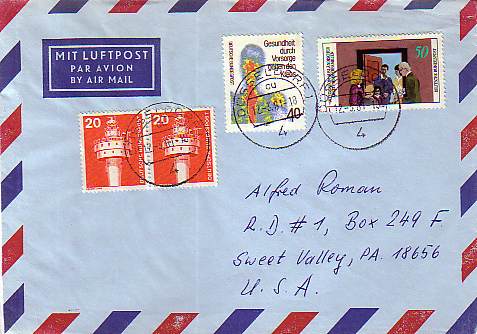 MIT LUFTPOST
PAR AVION
BY AIR MAIL
Gesundheit
durch
Vorsorge
gegen den
Krebs
40
50
20 20
4
4
4
Alfred Roman
R.D. #1, Box 249 F.
Sweet Valley, PA. 18656
U. S. A.